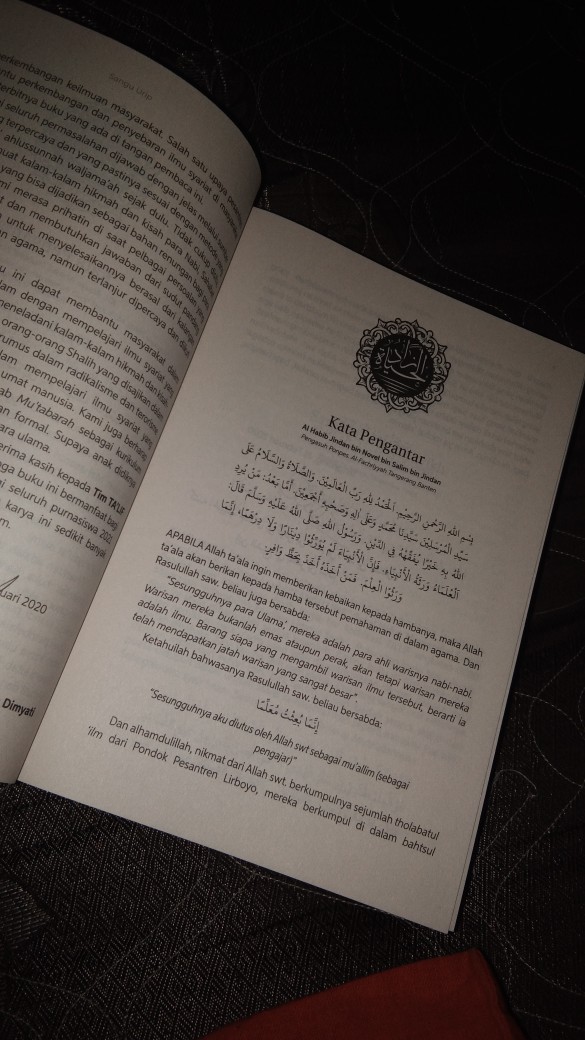 Sangu Urip
perkembangan keilmuan masyarakat. Salah satu upaya
perkembangan dan penyebaran ilmu syariat di
terbitnya buku yang ada di tangan pembaca ini.
seluruh permasalahan dijawab dengan jelas melalui
terpercaya dan yang pastinya sesuai dengan
ahlussunnah waljama'ah sejak dulu. Tidak cukup
kalam-kalam hikmah dan kisah para Nabi
yang bisa dijadikan sebagai bahan renungan bagi
merasa prihatin di saat pelbagai persoalan
dan membutuhkan jawaban dari sudut
untuk menyelesaikannya berasal dari
agama, namun terlanjur dipercaya dan
ini dapat membantu masyarakat
dengan mempelajari ilmu syariat
meneladani kalam-kalam hikmah dan
orang-orang Shalih yang disajikan
dalam radikalisme dan
mempelajari ilmu syariat
umat manusia. Kami juga
Mu'tabarah sebagai kurikulum
formal. Supaya anak
para ulama.
terima kasih kepada Tim
buku ini bermanfaat bagi
seluruh purnasiswa 2020
karya ini sedikit banyak
2020
Dimyati
Kata Pengantar
Al Habib Jindan bin Novel bin Salim bin Jindan
Pengasuh Ponpes. Al-Fachriyyah Tangerang Banten
بِسْمِ اللهِ الرَّحْمٰنِ الرَّحِيْمِ. الْحَمْدُ لِلهِ رَبِّ الْعَالَمِيْنَ. وَالصَّلَاةُ وَالسَّلَامُ عَلَى
سَيِّدِ الْمُرْسَلِيْنَ سَيِّدِنَا مُحَمَّدٍ وَعَلَى اٰلِهِ وَصَحْبِهِ أَجْمَعِيْنَ. أَمَّا بَعْدُ: مَنْ يُرِدِ
اللهُ بِهِ خَيْرًا يُفَقِّهْهُ فِي الدِّيْنِ. وَرَسُوْلُ اللهِ صَلَّى اللهُ عَلَيْهِ وَسَلَّمَ قَالَ:
اَلْعُلَمَاءُ وَرَثَةُ الْأَنْبِيَاءِ، فَإِنَّ الْأَنْبِيَاءَ لَمْ يُوَرِّثُوْا دِيْنَارًا وَلَا دِرْهَمًا، إِنَّمَا
وَرَّثُوا الْعِلْمَ، فَمَنْ أَخَذَهُ أَخَذَ بِحَظٍّ وَافِيٍ.
APABILA Allah ta'ala ingin memberikan kebaikan kepada hambanya, maka Allah
ta'ala akan berikan kepada hamba tersebut pemahaman di dalam agama. Dan
Rasulullah saw. beliau juga bersabda:
"Sesungguhnya para Ulama', mereka adalah para ahli warisnya nabi-nabi.
Warisan mereka bukanlah emas ataupun perak, akan tetapi warisan mereka
adalah ilmu. Barang siapa yang mengambil warisan ilmu tersebut, berarti ia
telah mendapatkan jatah warisan yang sangat besar".
Ketahuilah bahwasanya Rasulullah saw. beliau bersabda:
إِنَّمَا بُعِثْتُ مُعَلِّمًا
"Sesungguhnya aku diutus oleh Allah swt sebagai mu'allim (sebagai
pengajar)"
Dan alhamdulillah, nikmat dari Allah swt. berkumpulnya sejumlah tholabatul
'ilm dari Pondok Pesantren Lirboyo, mereka berkumpul di dalam bahtsul